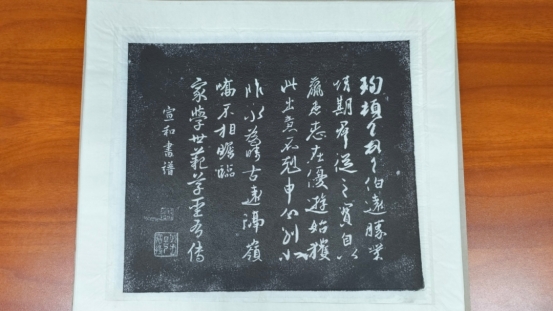 珣頓首頓首伯遠勝業
情期群從之寶自以
羸患志在優遊始獲
此出意不剋申分別如
昨永為疇古遠隔嶺
嶠不相瞻臨
家學世範草聖有傳
宣和書譜